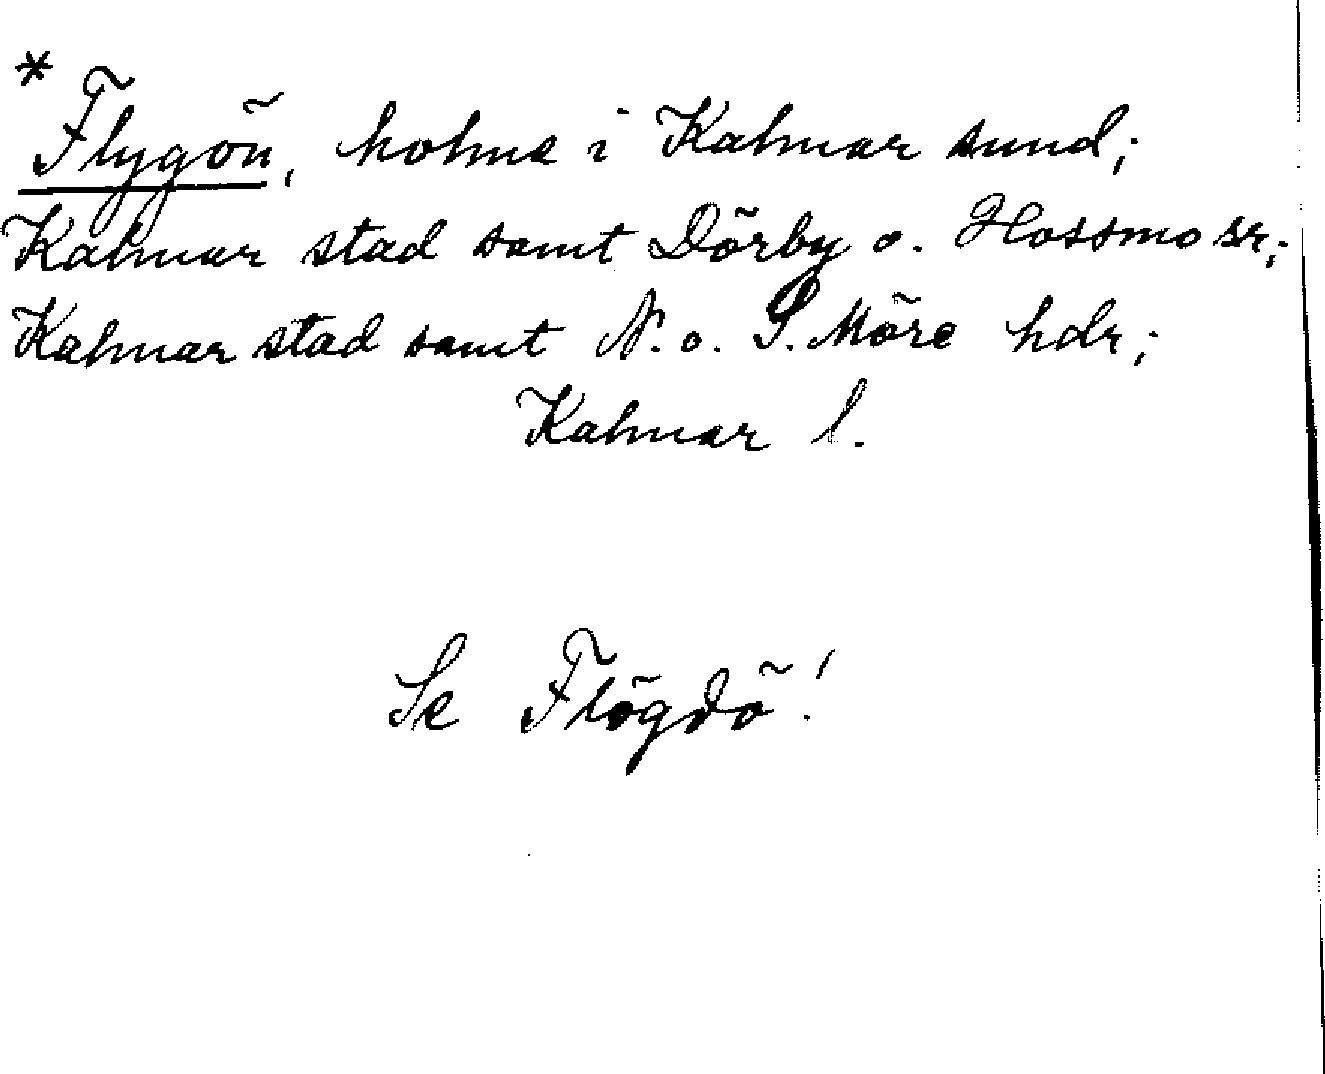 *
Flygön, holme i Kalmar sund;
Kalmar stad samt Dörby o. Hossmo sr;
Kalmar stad samt N. o. S. Möre hdr;
Kalmar l.
Se Flögdö!